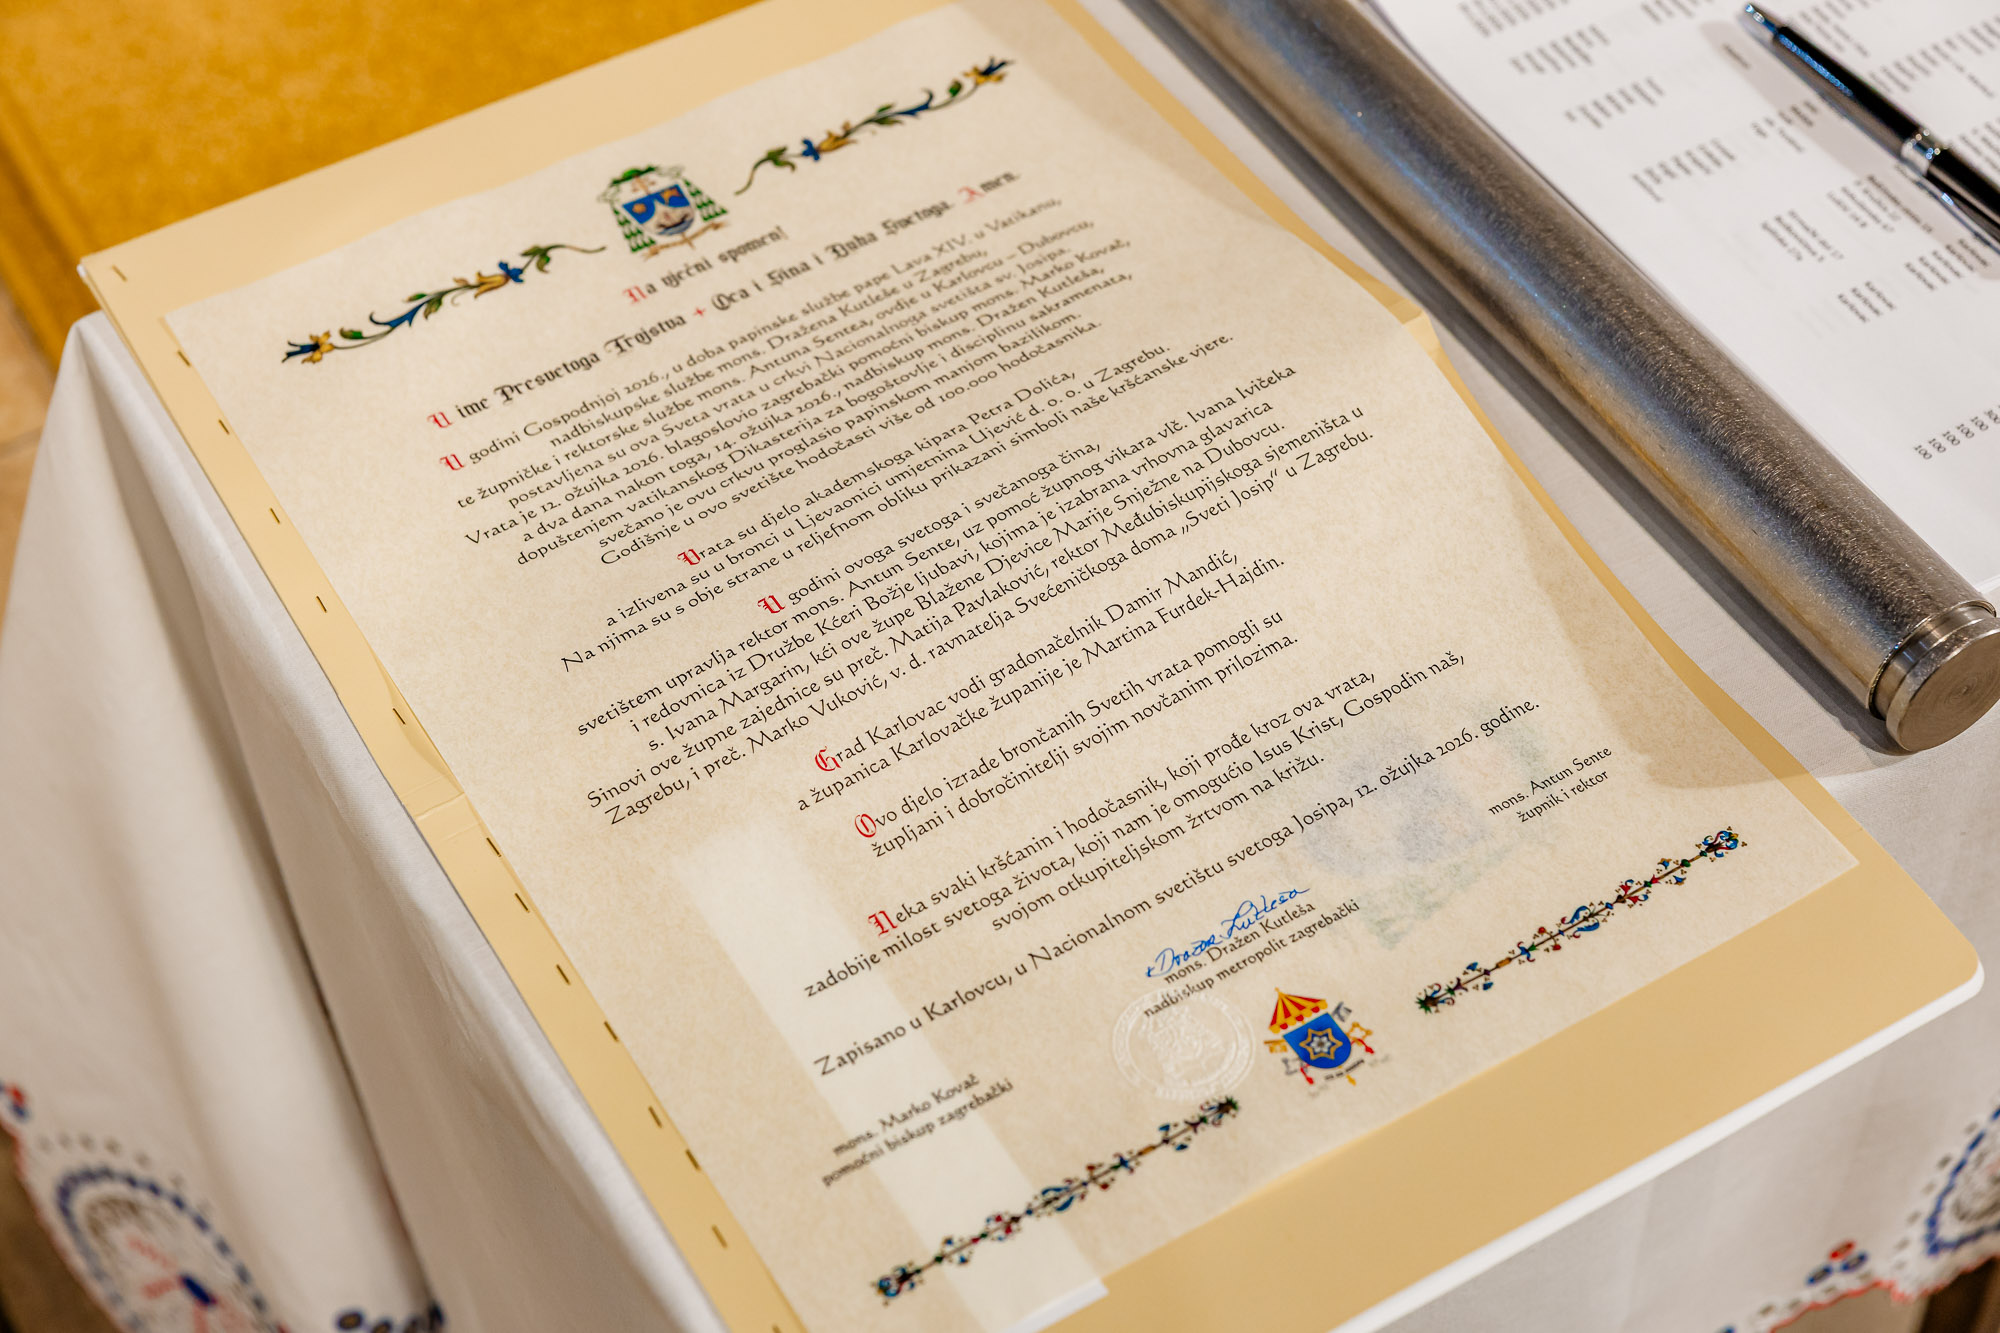 Na vječni spomen!
U ime Presvetoga Trojstva + Oca i Sina i Duha Svetoga. Amen.
U godini Gospodnjoj 2026., u doba papinske službe pape Lava XIV. u Vatikanu,
nadbiskupske službe mons. Dražena Kutleše u Zagrebu,
te župničke i rektorske službe mons. Antuna Sentea, ovdje u Karlovcu – Dubovcu,
postavljena su ova Sveta vrata u crkvi Nacionalnoga svetišta sv. Josipa.
Vrata je 12. ožujka 2026. blagoslovio zagrebački pomoćni biskup mons. Marko Kovač,
a dva dana nakon toga, 14. ožujka 2026., nadbiskup mons. Dražen Kutleša,
dopuštenjem vatikanskog Dikasterija za bogoštovlje i disciplinu sakramenata,
svečano je ovu crkvu proglasio papinskom manjom bazilikom.
Godišnje u ovo svetište hodočasti više od 100.000 hodočasnika.
Vrata su djelo akademskoga kipara Petra Dolića,
a izlivena su u bronci u Ljevaonici umjetnina Ujević d. o. o. u Zagrebu.
Na njima su s obje strane u reljefnom obliku prikazani simboli naše kršćanske vjere.
U godini ovoga svetoga i svečanoga čina,
svetištem upravlja rektor mons. Antun Sente, uz pomoć župnog vikara vlč. Ivana Ivičeka
i redovnica iz Družbe Kćeri Božje ljubavi, kojima je izabrana vrhovna glavarica
s. Ivana Margarin, kći ove župe Blažene Djevice Marije Snježne na Dubovcu.
Sinovi ove župne zajednice su preč. Matija Pavlaković, rektor Međubiskupijskoga sjemeništa u
Zagrebu, i preč. Marko Vuković, v. d. ravnatelja Svećeničkoga doma „Sveti Josip“ u Zagrebu.
Grad Karlovac vodi gradonačelnik Damir Mandić,
a županica Karlovačke županije je Martina Furdek-Hajdin.
Ovo djelo izrade brončanih Svetih vrata pomogli su
župljani i dobročinitelji svojim novčanim prilozima.
Neka svaki kršćanin i hodočasnik, koji prođe kroz ova vrata,
zadobije milost svetoga života, koji nam je omogućio Isus Krist, Gospodin naš,
svojom otkupiteljskom žrtvom na križu.
Zapisano u Karlovcu, u Nacionalnom svetištu svetoga Josipa, 12. ožujka 2026. godine.
mons. Antun Sente
župnik i rektor
Dražen Kutleša
mons. Dražen Kutleša
nadbiskup metropolit zagrebački
mons. Marko Kovač
pomoćni biskup zagrebački